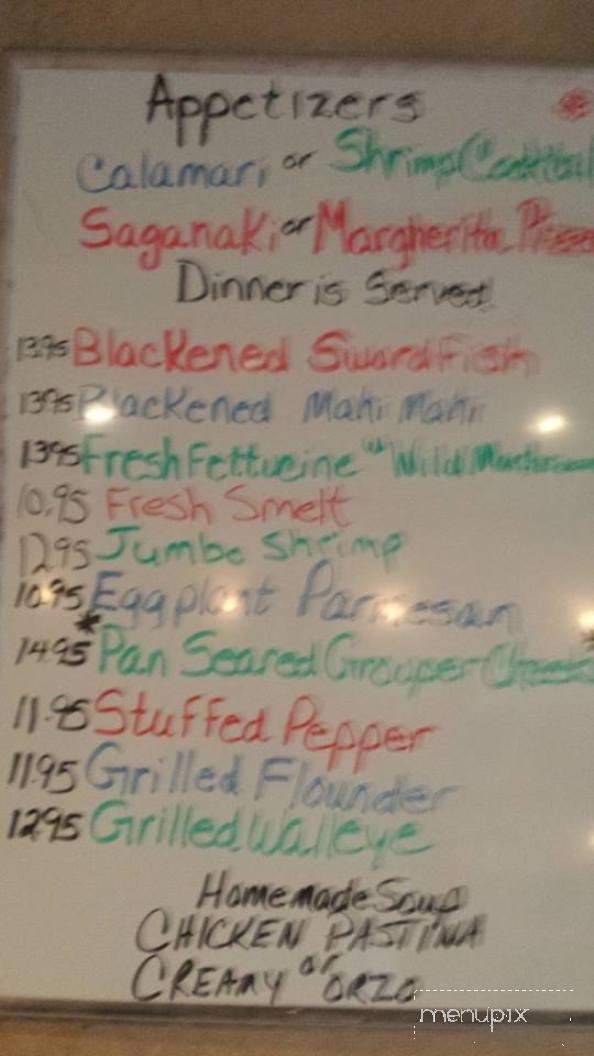 Appetizers
Calamari or Shrimp Cocktail
Saganaki or Margherita Pizza
Dinner is Served
13.95 Blackened SwordFish
13.95 Blackened Mahi Mahi
13.95 Fresh Fettucine w/ Wild Mushroom
10.95 Fresh Smelt
12.95 Jumbo Shrimp
10.95 Eggplant Parmesan
14.95 * Pan Seared Grouper Cheeks
11.95 Stuffed Pepper
11.95 Grilled Flounder
12.95 Grilled Walleye
Homemade Soup
CHICKEN PASTINA
or
CREAMY ORZO
menupix